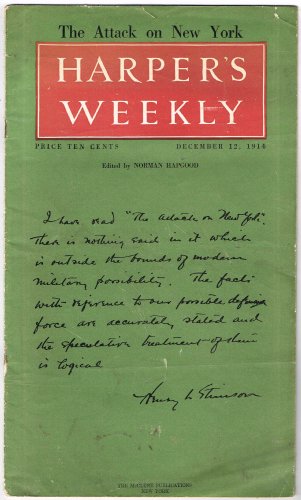 The Attack on New York
HARPER'S
WEEKLY
PRICE TEN CENTS DECEMBER 12, 1914
Edited by NORMAN HAPGOOD
I have read "The attack on New York".
there is nothing said in it which
is outside the bounds of modern
military possibility. The facts
with reference to our possible defensive
force are accurately stated and
the speculative treatment of them
is logical
Henry L Stimson
THE McCLURE PUBLICATIONS
NEW YORK